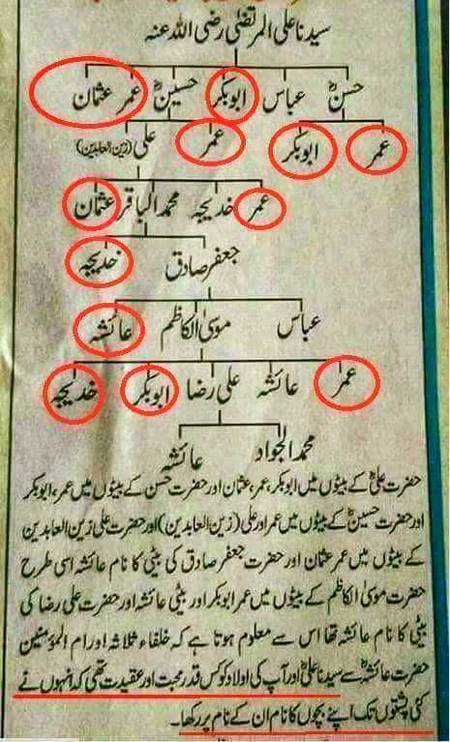 سیدنا علی المرتضیٰ رضی اللہ عنہ
حسنؓ عباس ابوبکر حسینؓ عمر عثمان
عمر ابوبکر عمر علی (زین العابدین)
عمر خدیجہ محمد الباقر عثمان
جعفر صادق خدیجہ
عباس موسیٰ الکاظم عائشہ
عمر عائشہ علی رضا ابوبکر خدیجہ
محمد الجواد عائشہ
حضرت علیؓ کے بیٹوں میں ابوبکر، عمر، عثمان اور حضرت حسن کے بیٹوں میں عمر، ابوبکر
اور حضرت حسینؓ کے بیٹوں میں عمر اور علی (زین العابدین) اور حضرت علی زین العابدین
کے بیٹوں میں عمر عثمان اور حضرت جعفر صادق کی بیٹی کا نام عائشہ اسی طرح
حضرت موسیٰ الکاظم کے بیٹوں میں عمر ابوبکر اور بیٹی عائشہ اور حضرت علی رضا کی
بیٹی کا نام عائشہ تھا اس سے معلوم ہوتا ہے کہ خلفاء ثلاثہ اور ام المؤمنین
حضرت عائشہؓ سے سیدنا علیؓ اور آپ کی اولاد کو کس قدر محبت اور عقیدت تھی کہ انہوں نے
کئی پشتوں تک اپنے بچوں کا نام ان کے نام پر رکھا۔